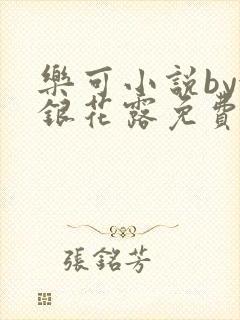 樂可小說by
銀花露免費
張銘芳